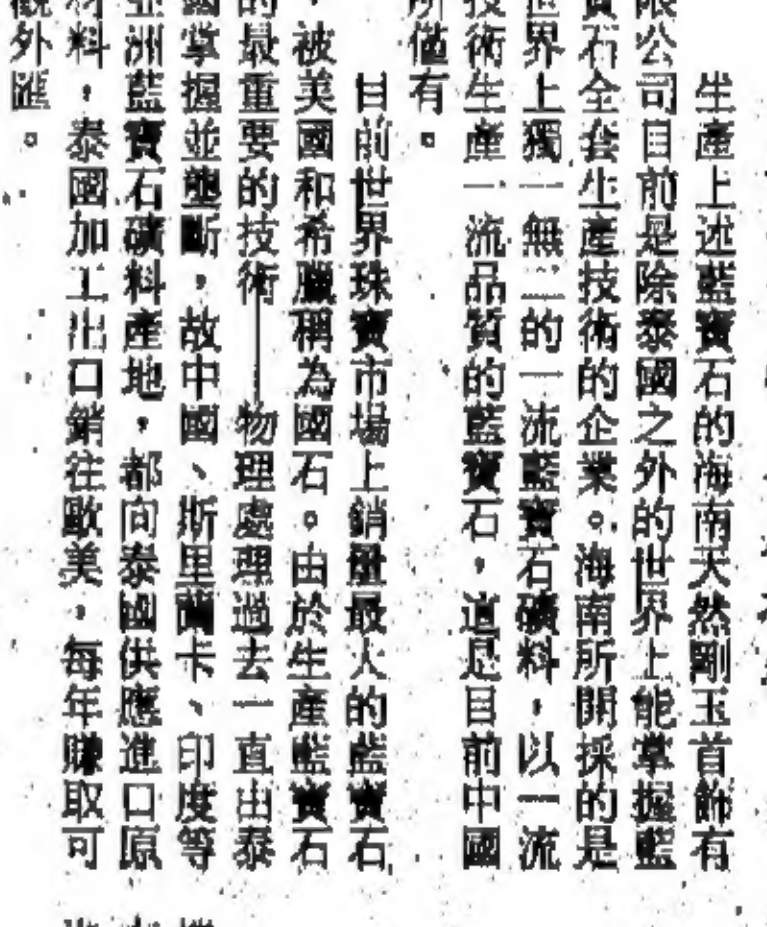 生產上述藍寶石的海南天然剛玉首飾有
限公司目前是除泰國之外的世界上能掌握藍
寶石全套生產技術的企業。海南所開採的是
世界上獨一無二的一流藍寶石礦料，以一流
技術生產一流品質的藍寶石，這是目前中國
所僅有。
目前世界珠寶市場上銷量最大的藍寶石
，被美國和希臘稱為國石。由於生產藍寶石
的最重要的技術——物理處理過去一直由泰
國掌握並壟斷，故中國、斯里蘭卡、印度等
亞洲藍寶石礦料產地，都向泰國供應進口原
材料，泰國加工出口銷往歐美，每年賺取可
觀外匯。